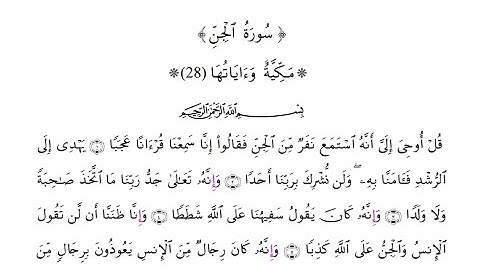 ﴿ سُورَةُ ٱلْجِنِّ ﴾
❋ مَكِّيَّةٌ وَءَايَاتُهَا (28) ❋
بِسْمِ ٱللَّهِ ٱلرَّحْمَٰنِ ٱلرَّحِيمِ
قُلْ أُوحِىَ إِلَىَّ أَنَّهُ ٱسْتَمَعَ نَفَرٌ مِّنَ ٱلْجِنِّ فَقَالُواْ إِنَّا سَمِعْنَا قُرْءَانًا عَجَبًا ۝ يَهْدِى إِلَى
ٱلرُّشْدِ فَـَٔامَنَّا بِهِۦ ۖ وَلَن نُّشْرِكَ بِرَبِّنَا أَحَدًا ۝ وَإِنَّهُۥ تَعَٰلَىٰ جَدُّ رَبِّنَا مَا ٱتَّخَذَ صَٰحِبَةً
وَلَا وَلَدًا ۝ وَإِنَّهُۥ كَانَ يَقُولُ سَفِيهُنَا عَلَى ٱللَّهِ شَطَطًا ۝ وَإِنَّا ظَنَنَّا أَن لَّن تَقُولَ
ٱلْإِنسُ وَٱلْجِنُّ عَلَى ٱللَّهِ كَذِبًا ۝ وَإِنَّهُۥ كَانَ رِجَالٌ مِّنَ ٱلْإِنسِ يَعُوذُونَ بِرِجَالٍ مِّنَ